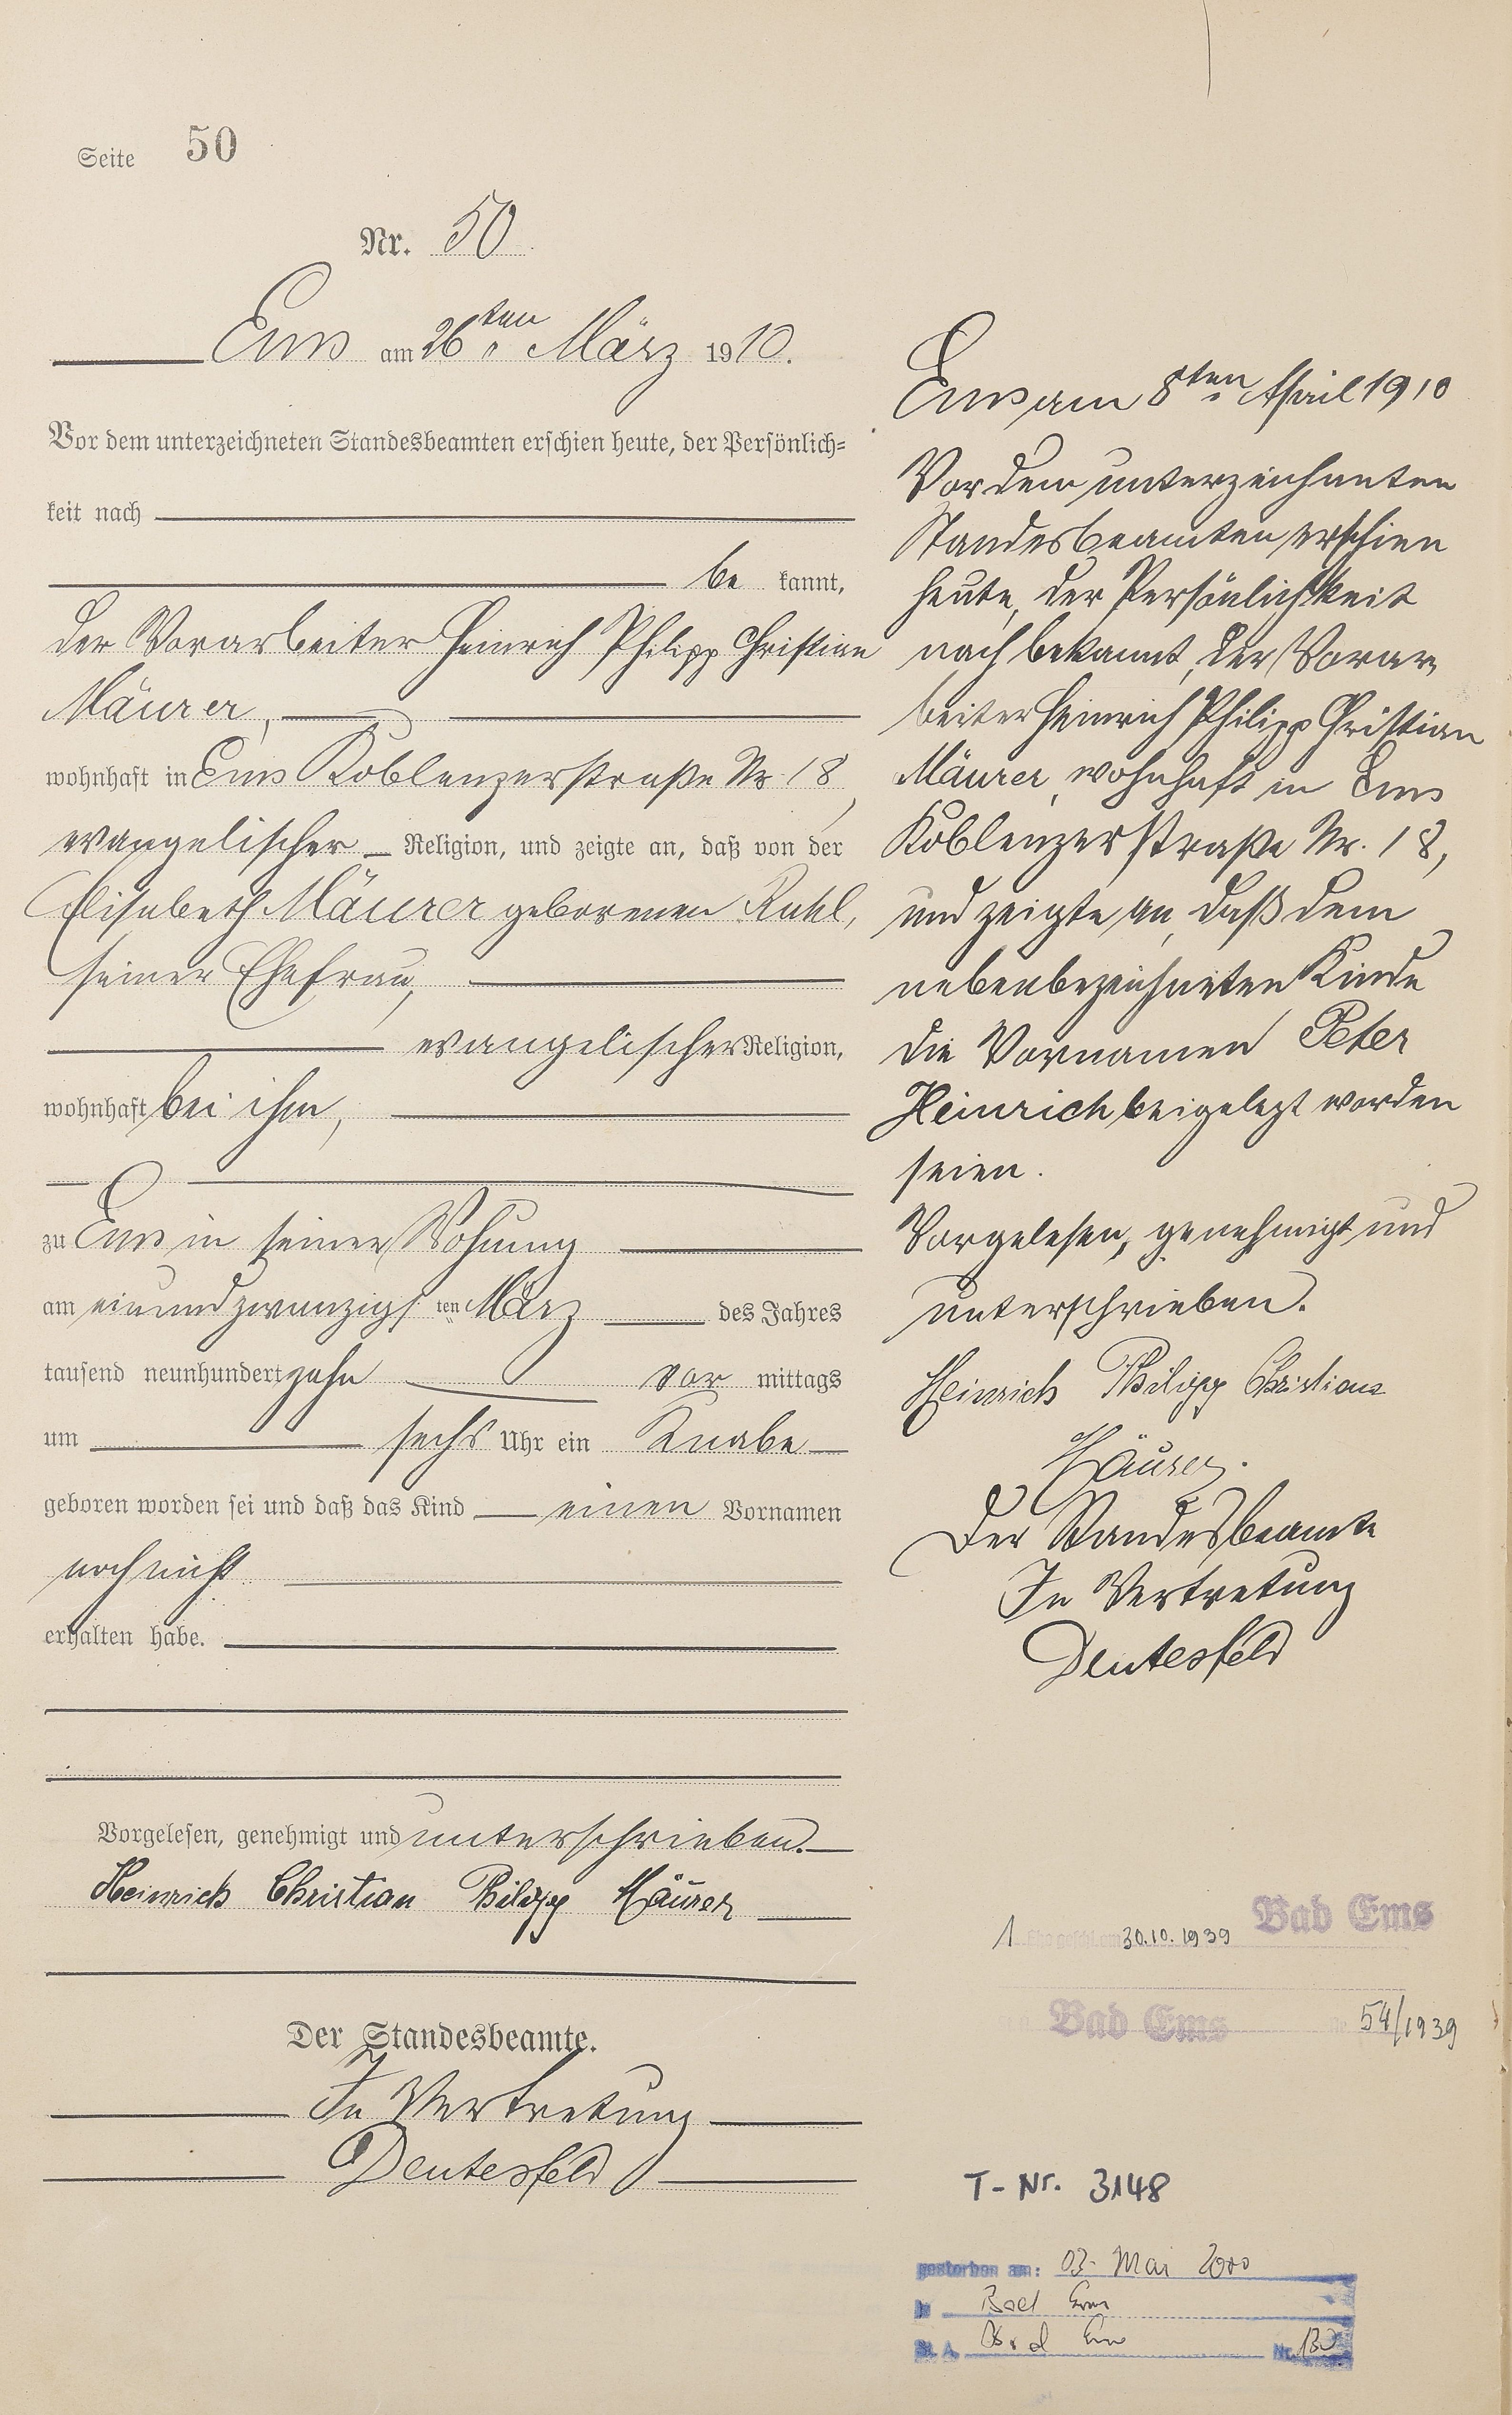 Seite 50
Nr. 50.
Ems am 26ten März 1910.
Vor dem unterzeichneten Standesbeamten erschien heute, der Persönlich=
keit nach
be kannt,
der Vorarbeiter Heinrich Philipp Christian
Mäurer,
wohnhaft in Ems Koblenzerstraße Nr. 18,
evangelischer Religion, und zeigte an, daß von der
Elisabeth Mäurer geborenen Ruhl,
seiner Ehefrau,
evangelischer Religion,
wohnhaft bei ihm,
zu Ems in seiner Wohnung
am einundzwanzigsten März des Jahres
tausend neunhundert zehn vor mittags
um sechs Uhr ein Knabe
geboren worden sei und daß das Kind einen Vornamen
noch nicht
erhalten habe.
Vorgelesen, genehmigt und unterschrieben.
Heinrich Christian Philipp Mäurer
Der Standesbeamte.
In Vertretung
Deutesfeld
Ems am 8ten April 1910
Vor dem unterzeichneten
Standesbeamten erschien
heute, der Persönlichkeit
nach bekannt, der Vorar
beiter Heinrich Philipp Christian
Mäurer, wohnhaft in Ems
Koblenzerstraße Nr. 18,
und zeigte an, daß dem
nebenbezeichneten Kinde
die Vornamen Peter
Heinrich beigelegt worden
seien.
Vorgelesen, genehmigt und
unterschrieben.
Heinrich Philipp Christian
Mäurer.
Der Standesbeamte
In Vertretung
Deutesfeld
1. Ehe geschl. am 30.10.1939 Bad Ems
Bad Ems 54/1939
T-Nr. 3148
gestorben am: 03. Mai 2000
in Bad Ems
St. A. Bad Ems Nr. 130